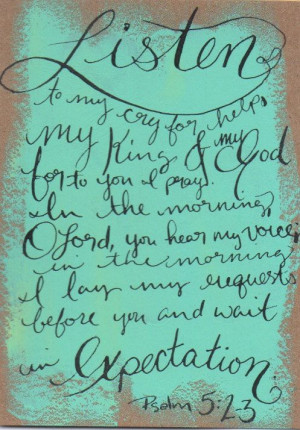 Listen
to my cry for help,
my King & my God
for to you I pray.
In the morning,
O Lord, you hear my voice,
in the morning
I lay my requests
before you and wait
in Expectation.
Psalm 5:2-3